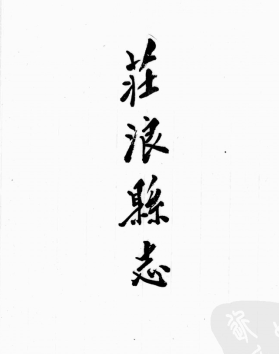 莊浪縣志